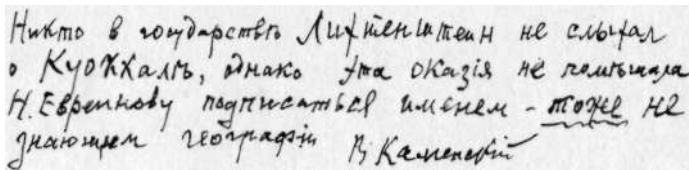 Никто в государствѣ Лихтенштеин не слыхал
о Куоккалѣ, однако эта оказія не помѣшала
Н. Евреинову подписаться именем - тоже не
знающем географіи В. Каменскій